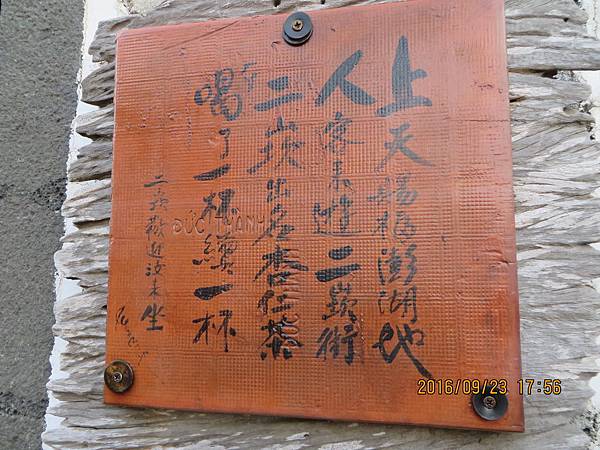 上天賜福澎湖地
人客來遊二崁街
二崁出名杏仁茶
喝了一杯續一杯
二崁歡迎汝來坐
ĐỨC THÀNH
2016/09/23 17:56